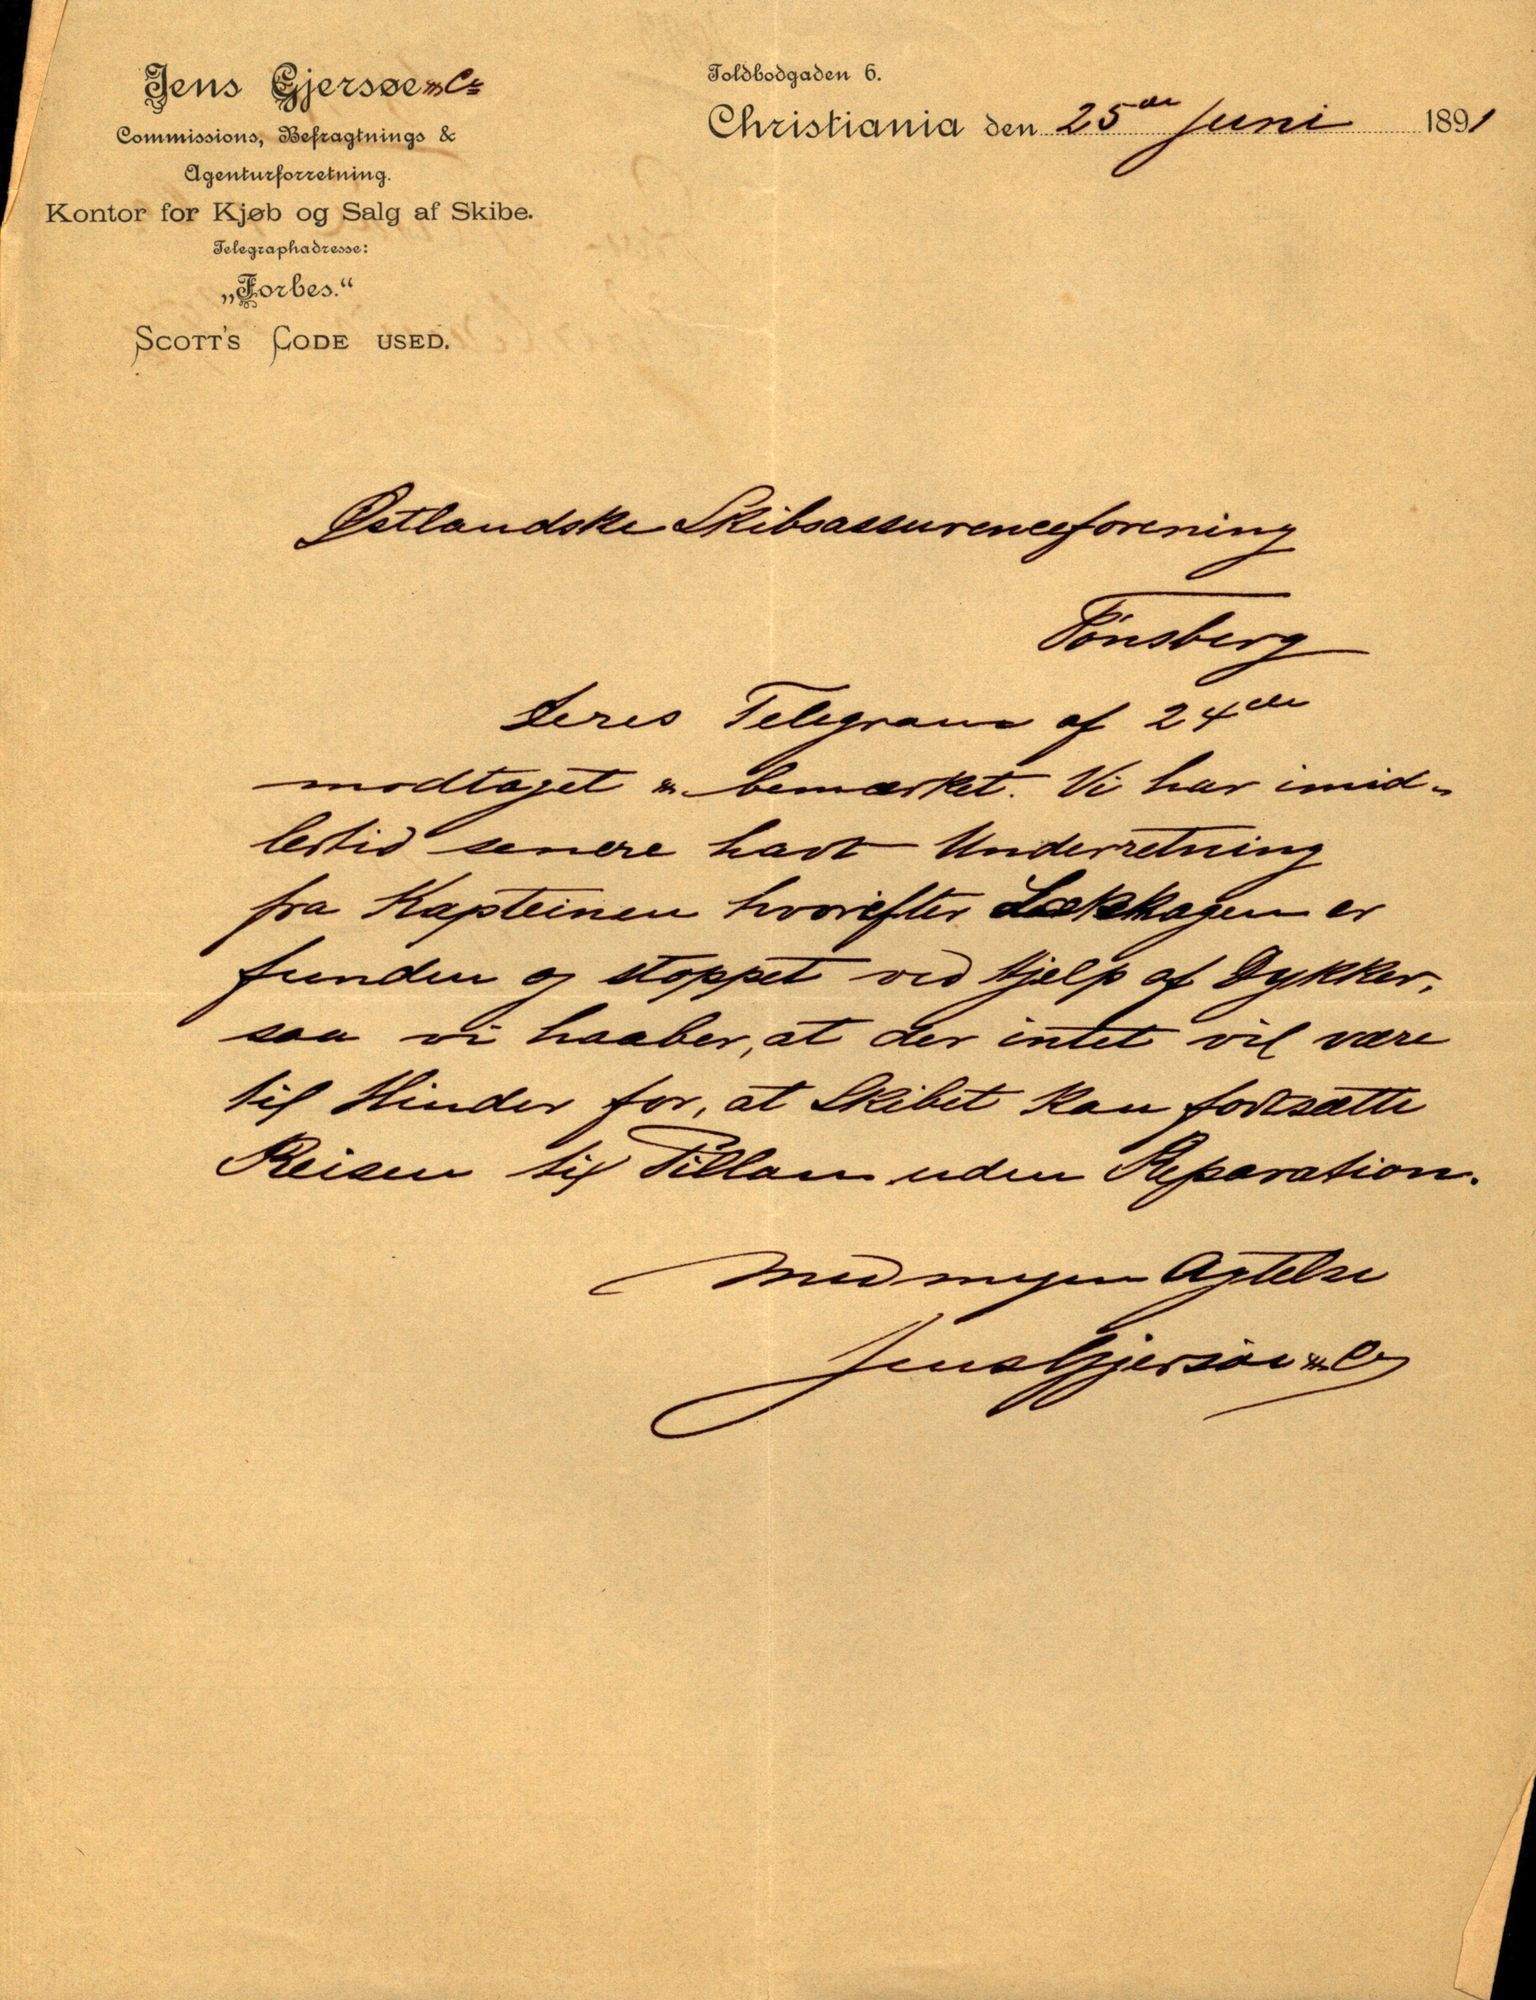 Jens Gjersøe & Co
Commissions, Befragtnings &
Agenturforretning.
Kontor for Kjøb og Salg af Skibe.
Telegraphadresse:
„Forbes.“
SCOTT'S CODE USED.
Toldbodgaden 6.
Christiania den 25de Juni 1891
Østlandske Skibsassuranceforening
Tönsberg
Deres Telegram af 24de
modtaget & bemærket. Vi har imid-
lertid senere havt Underretning
fra Kapteinen hvorefter Lækkagen er
funden og stoppet ved Hjelp af Dykker,
saa vi haaber, at der intet vil være
til Hinder for, at Skibet kan fortsætte
Reisen til Pillau uden Reparation.
Med megen Agtelse
Jens Gjersöe & Co